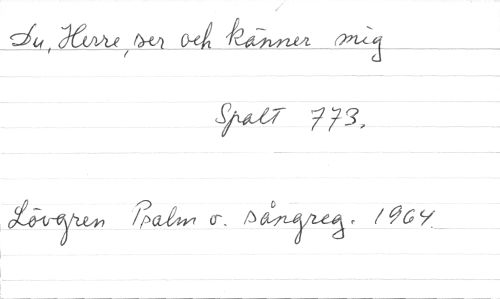 Du, Herre, ser och känner mig
Spalt 773.
Lövgren Psalm o. sångreg. 1964.